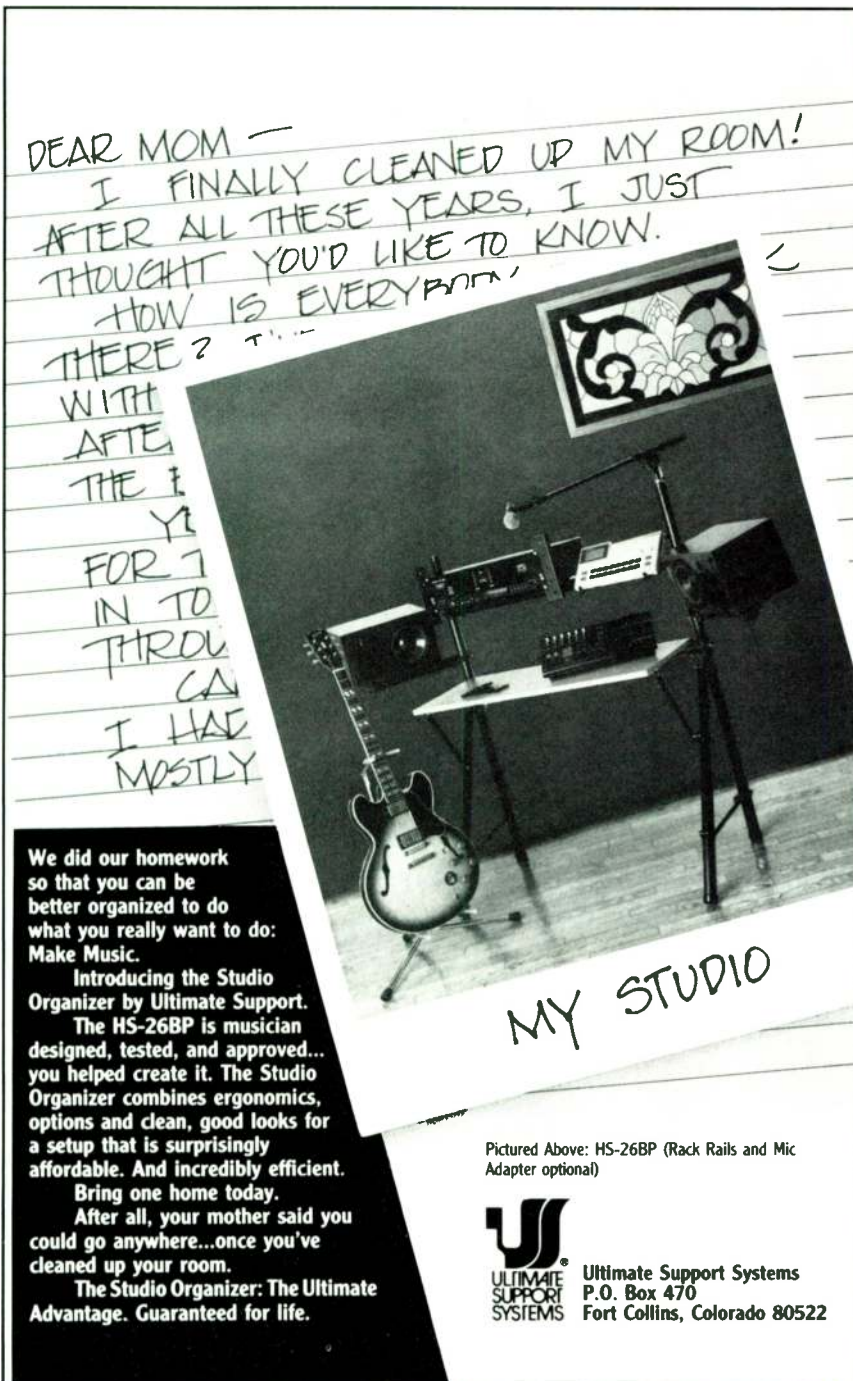 DEAR MOM —
I FINALLY CLEANED UP MY ROOM!
AFTER ALL THESE YEARS, I JUST
THOUGHT YOU'D LIKE TO KNOW.
HOW IS
THERE?
WITH
THE
FOR
IN TO
I HAD
MOSTLY
MY STUDIO
We did our homework
so that you can be
better organized to do
what you really want to do:
Make Music.
Introducing the Studio
Organizer by Ultimate Support.
The HS-26BP is musician
designed, tested, and approved...
you helped create it. The Studio
Organizer combines ergonomics,
options and clean, good looks for
a setup that is surprisingly
affordable. And incredibly efficient.
Bring one home today.
After all, your mother said you
could go anywhere...once you've
cleaned up your room.
The Studio Organizer: The Ultimate
Advantage. Guaranteed for life.
Pictured Above: HS-26BP (Rack Rails and Mic
Adapter optional)
US®
ULTIMATE
SUPPORT
SYSTEMS
Ultimate Support Systems
P.O. Box 470
Fort Collins, Colorado 80522